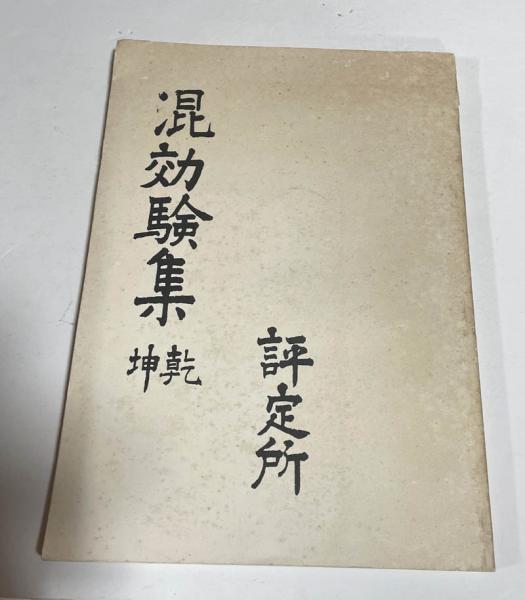 評定所
混効験集
乾
坤